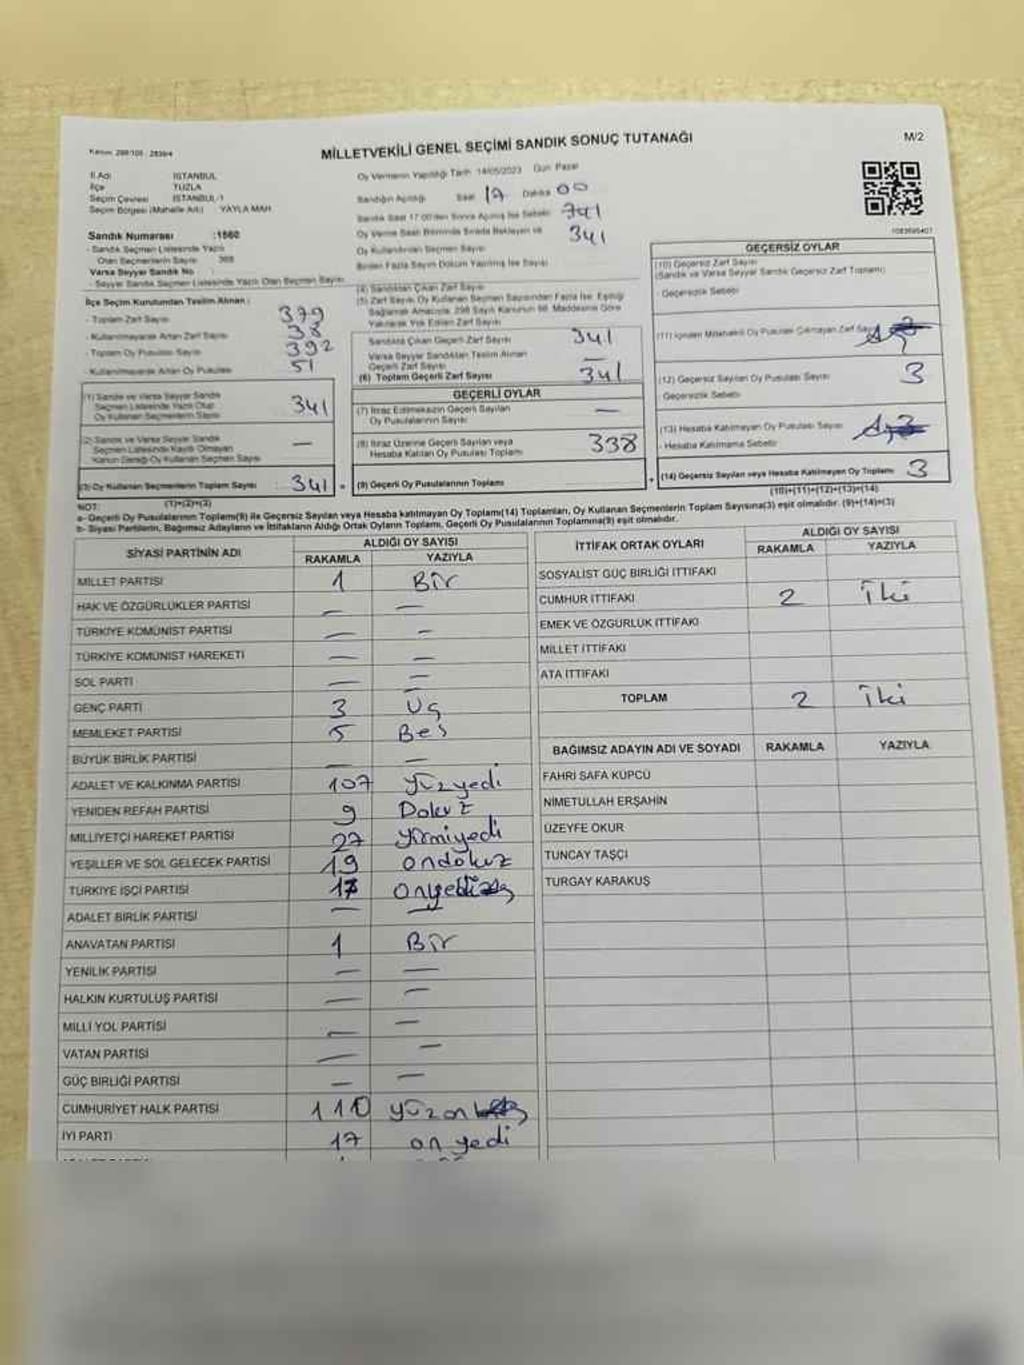 Kanun: 298/105 - 2839/4
MİLLETVEKİLİ GENEL SEÇİMİ SANDIK SONUÇ TUTANAĞI
M/2
İl Adı İSTANBUL
İlçe TUZLA
Seçim Çevresi İSTANBUL-1
Seçim Bölgesi (Mahalle Adı) YAYLA MAH
Sandık Numarası :1560
- Sandık Seçmen Listesinde Yazılı
Olan Seçmenlerin Sayısı 388
Varsa Seyyar Sandık No :
- Seyyar Sandık Seçmen Listesinde Yazılı Olan Seçmen Sayısı
Oy Vermenin Yapıldığı Tarih 14/05/2023 Gün Pazar
Sandığın Açıldığı Saat 17 Dakika 00
Sandık Saat 17.00'den Sonra Açılmış İse Sebebi 341
Oy Verme Saati Bitiminde Sırada Bekleyen ve 341
Oy Kullandırılan Seçmen Sayısı
Birden Fazla Sayım Döküm Yapılmış İse Sayısı
İlçe Seçim Kurulundan Teslim Alınan :
- Toplam Zarf Sayısı 379
- Kullanılmayarak Artan Zarf Sayısı 38
- Toplam Oy Pusulası Sayısı 392
- Kullanılmayarak Artan Oy Pusulası 51
(1) Sandık ve Varsa Seyyar Sandık
Seçmen Listesinde Yazılı Olup
Oy Kullanan Seçmenlerin Sayısı 341
(2) Sandık ve Varsa Seyyar Sandık
Seçmen Listesinde Kayıtlı Olmayan
Kanun Gereği Oy Kullanan Seçmen Sayısı —
(3) Oy Kullanan Seçmenlerin Toplam Sayısı : 341 =
(1)+(2)=(3)
(4) Sandıktan Çıkan Zarf Sayısı
(5) Zarf Sayısı Oy Kullanan Seçmen Sayısından Fazla İse, Eşitliği
Sağlamak Amacıyla, 298 Sayılı Kanunun 98. Maddesine Göre
Yakılarak Yok Edilen Zarf Sayısı
Sandıkta Çıkan Geçerli Zarf Sayısı 341
Varsa Seyyar Sandıktan Teslim Alınan
Geçerli Zarf Sayısı —
(6) Toplam Geçerli Zarf Sayısı 341
GEÇERLİ OYLAR
(7) İtiraz Edilmeksizin Geçerli Sayılan
Oy Pusulası Toplamı —
(8) İtiraz Üzerine Geçerli Sayılan veya
Hesaba Katılan Oy Pusulası Toplamı 338
(9) Geçerli Oy Pusulalarının Toplamı +
GEÇERSİZ OYLAR
(10) Geçersiz Zarf Sayısı
(Sandık ve Varsa Seyyar Sandık Geçersiz Zarf Toplamı)
- Geçersizlik Sebebi
(11) İçinden Milletvekili Oy Pusulası Çıkmayan Zarf Sayısı
(12) Geçersiz Sayılan Oy Pusulası Sayısı 3
Geçersizlik Sebebi
(13) Hesaba Katılmayan Oy Pusulası Sayısı
- Hesaba Katılmama Sebebi
(14) Geçersiz Sayılan veya Hesaba Katılmayan Oy Toplamı 3
(10)+(11)+(12)+(13)=(14)
NOT:
a- Geçerli Oy Pusulalarının Toplamı(9) ile Geçersiz Sayılan veya Hesaba katılmayan Oy Toplamı(14) Toplamları, Oy Kullanan Seçmenlerin Toplam Sayısına(3) eşit olmalıdır. (9)+(14)=(3)
b- Siyasi Partilerin, Bağımsız Adayların ve İttifakların Aldığı Ortak Oyların Toplamı, Geçerli Oy Pusulalarının Toplamına(9) eşit olmalıdır.
SİYASİ PARTİNİN ADI ALDIĞI OY SAYISI
RAKAMLA YAZIYLA
MİLLET PARTİSİ 1 Bir
HAK VE ÖZGÜRLÜKLER PARTİSİ — —
TÜRKİYE KOMÜNİST PARTİSİ — —
TÜRKİYE KOMÜNİST HAREKETİ — —
SOL PARTİ — —
GENÇ PARTİ 3 Üç
MEMLEKET PARTİSİ 5 Beş
BÜYÜK BİRLİK PARTİSİ — —
ADALET VE KALKINMA PARTİSİ 107 Yüzyedi
YENİDEN REFAH PARTİSİ 9 Dokuz
MİLLİYETÇİ HAREKET PARTİSİ 27 Yirmiyedi
YEŞİLLER VE SOL GELECEK PARTİSİ 19 ondokuz
TÜRKİYE İŞÇİ PARTİSİ 17 onyedi
ADALET BİRLİK PARTİSİ — —
ANAVATAN PARTİSİ 1 Bir
YENİLİK PARTİSİ — —
HALKIN KURTULUŞ PARTİSİ — —
MİLLİ YOL PARTİSİ — —
VATAN PARTİSİ — —
GÜÇ BİRLİĞİ PARTİSİ — —
CUMHURİYET HALK PARTİSİ 110 yüzon
İYİ PARTİ 17 on yedi
İTTİFAK ORTAK OYLARI ALDIĞI OY SAYISI
RAKAMLA YAZIYLA
SOSYALİST GÜÇ BİRLİĞİ İTTİFAKI
CUMHUR İTTİFAKI 2 İki
EMEK VE ÖZGÜRLÜK İTTİFAKI
MİLLET İTTİFAKI
ATA İTTİFAKI
TOPLAM 2 İki
BAĞIMSIZ ADAYIN ADI VE SOYADI RAKAMLA YAZIYLA
FAHRİ SAFA KÜPCÜ
NİMETULLAH ERŞAHİN
ÜZEYFE OKUR
TUNCAY TAŞÇI
TURGAY KARAKUŞ